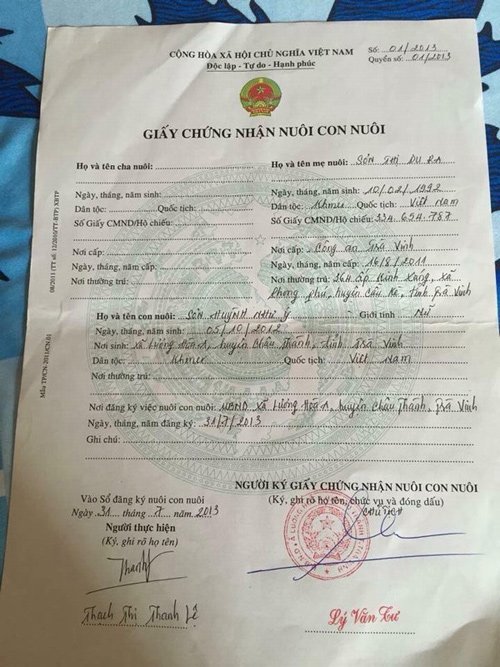 CỘNG HÒA XÃ HỘI CHỦ NGHĨA VIỆT NAM
Độc lập - Tự do - Hạnh phúc
Số: 01/2013
Quyển số: 01/2013
GIẤY CHỨNG NHẬN NUÔI CON NUÔI
Họ và tên cha nuôi:
Ngày, tháng, năm sinh:
Dân tộc: Quốc tịch:
Số Giấy CMND/Hộ chiếu:
Nơi cấp:
Ngày, tháng, năm cấp:
Nơi thường trú:
Họ và tên mẹ nuôi: SƠN THỊ DU RA
Ngày, tháng, năm sinh: 10/02/1992
Dân tộc: Khmer Quốc tịch: Việt Nam
Số Giấy CMND/Hộ chiếu: 334.654.787
Nơi cấp: Công an Trà Vinh
Ngày, tháng, năm cấp: 16/8/2011
Nơi thường trú: ấp Kinh Xáng, xã
Phong Phú, huyện Cầu Kè, tỉnh Trà Vinh
Họ và tên con nuôi: SƠN HUỲNH NHƯ Ý Giới tính: Nữ
Ngày, tháng, năm sinh: 05/10/2012
Nơi sinh: xã Lương Hòa A, huyện Châu Thành, tỉnh Trà Vinh
Dân tộc: Khmer Quốc tịch: Việt Nam
Nơi thường trú:
Nơi đăng ký việc nuôi con nuôi: UBND xã Lương Hòa A, huyện Châu Thành, Trà Vinh
Ngày, tháng, năm đăng ký: 31/7/2013
Ghi chú:
Vào Sổ đăng ký nuôi con nuôi
Ngày 31 tháng 7 năm 2013
Người thực hiện
(Ký, ghi rõ họ tên)
Thanh
Thạch Thị Thanh Lê
NGƯỜI KÝ GIẤY CHỨNG NHẬN NUÔI CON NUÔI
(Ký, ghi rõ họ tên, chức vụ và đóng dấu)
CHỦ TỊCH
Lý Văn Tư